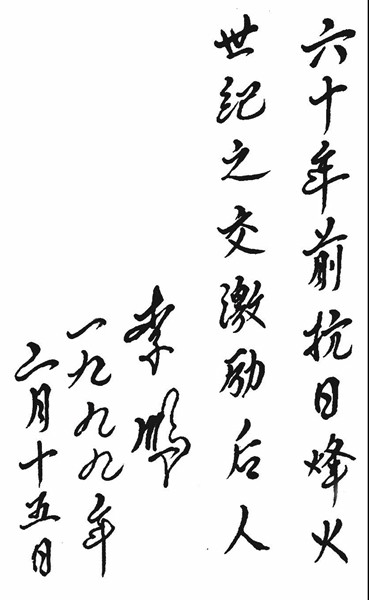 六十年前抗日烽火
世纪之交激励后人
李鹏
一九九九年
二月十五日